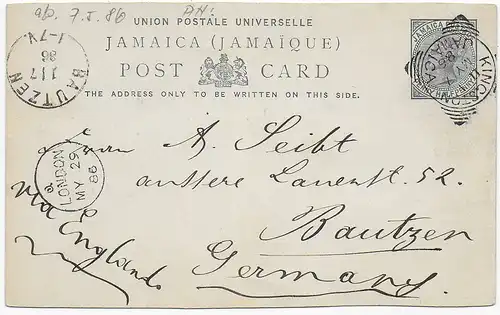 ab. 7.5.86
UNION POSTALE UNIVERSELLE
JAMAICA (JAMAÏQUE)
POST CARD
THE ADDRESS ONLY TO BE WRITTEN ON THIS SIDE.
BAUTZEN
86
KINGSTON
JAMAICA
Herrn A. Seibt
äussere Lauenst. 52.
Bautzen
Germany.
via England
a
LONDON
MY 29
86